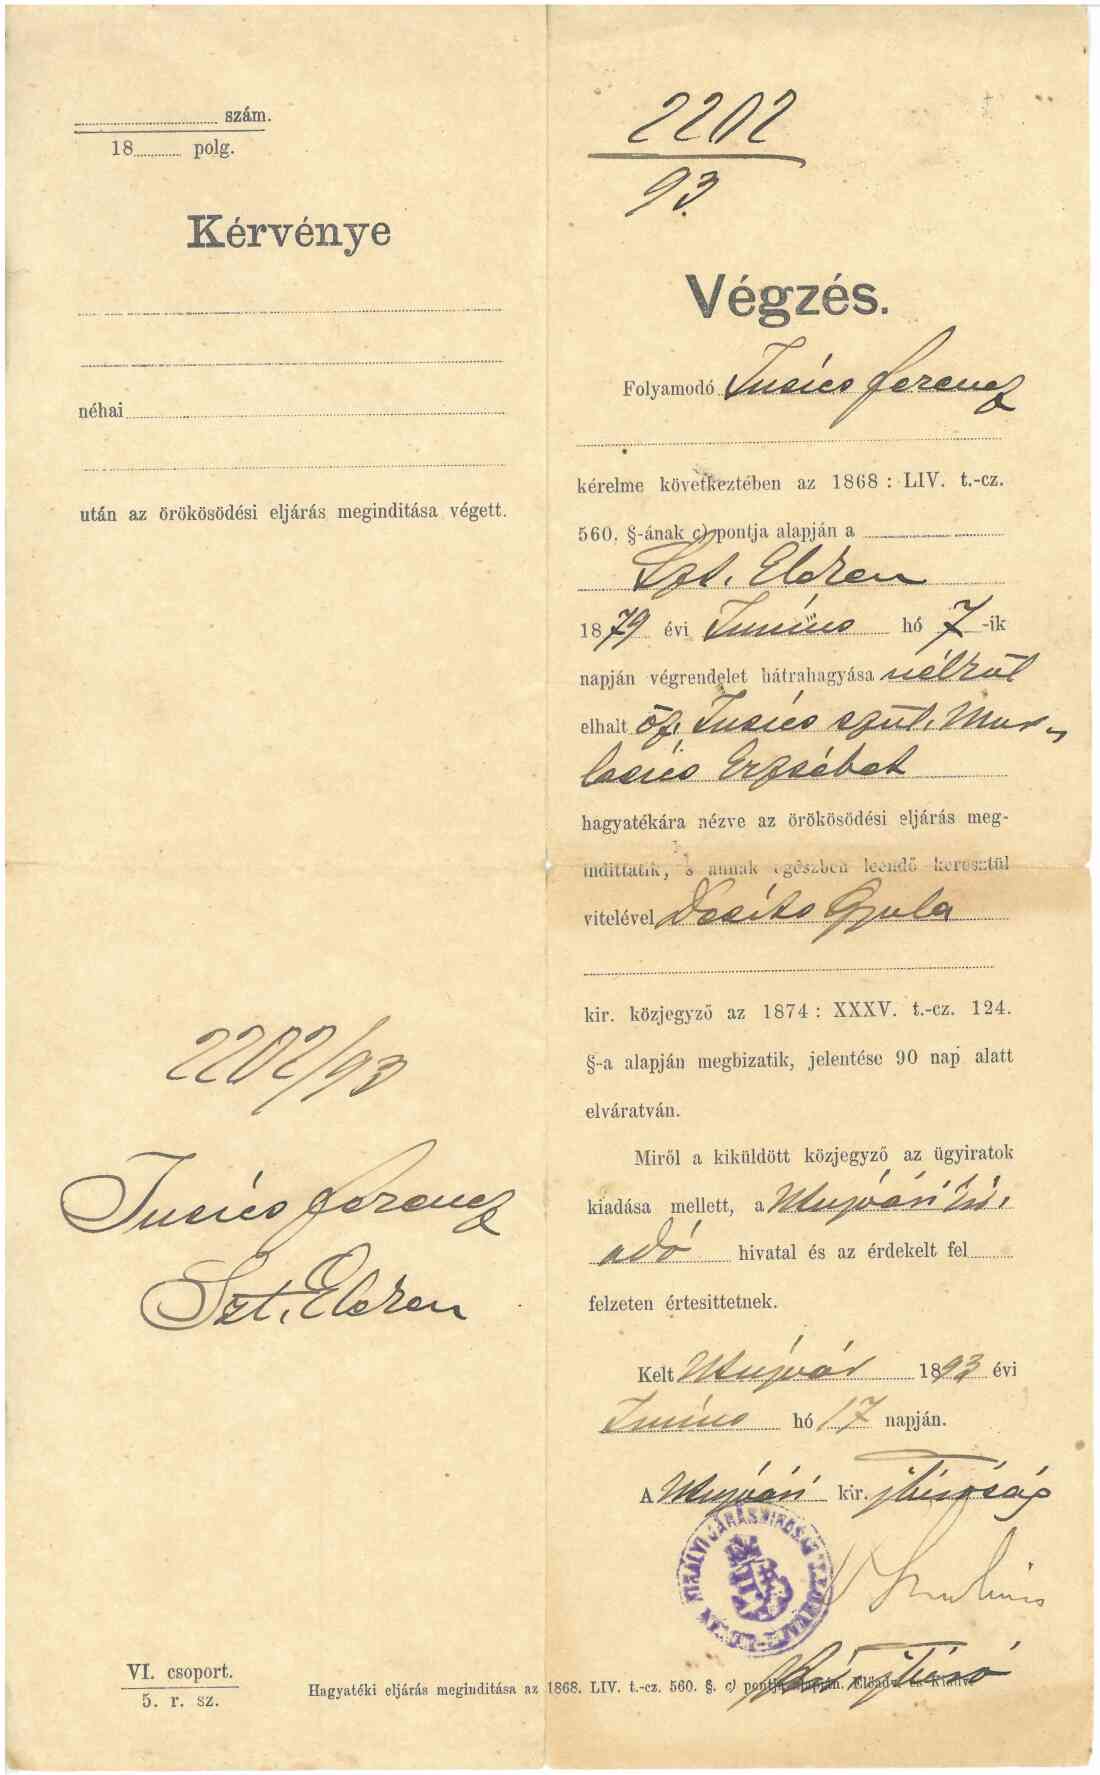 szám.
18 polg.
Kérvénye
néhai
után az örökösödési eljárás meginditása végett.
2202/93
Jusics Ferencz
Szt. Elek
VI. csoport.
5. r. sz.
2202
93.
Végzés.
Folyamodó Jusics Ferencz
kérelme következtében az 1868 : LIV. t.-cz.
560. §-ának c) pontja alapján a
Szt.
1879 évi Junius hó 7-ik
napján végrendelet hátrahagyása nélkül
elhalt özv. Jusics szül. Mur-
Erzsébet
hagyatékára nézve az örökösödési eljárás meg-
indittatik, s annak egészben leendő keresztül
vitelével Gyula
kir. közjegyző az 1874 : XXXV. t.-cz. 124.
§-a alapján megbizatik, jelentése 90 nap alatt
elváratván.
Miről a kiküldött közjegyző az ügyiratok
kiadása mellett, a
adó hivatal és az érdekelt fel
felzeten értesittetnek.
Kelt 1893 évi
Junius hó 17 napján.
A kir. jbiróság
KIRÁLYI JÁRÁSBIRÓSÁG
kir. jbiró
Hagyatéki eljárás meginditása az 1868. LIV. t.-cz. 560. §. c) pontja alapján. Előadó és kiadó.